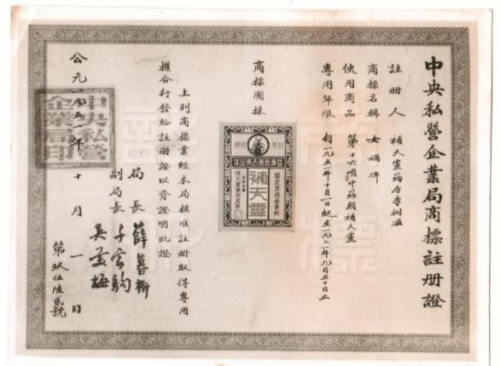 中央私營企業局商標註冊證
註冊人 補天靈药房李樹滋
商標名稱 女媧牌
使用商品 第十六項中药類補天靈
專用年限 自一九五一年十月一日起至一九七一年九月三十日止
商標圖樣
補天靈
上列商標業經本局核准註冊取得專用
權合行發給註冊證以資證明此證
局長 薛暮橋
副局長 千家駒
吳羹梅
公元一九五一年十月一日
中央私營企業局印
第玖伍陸貳號